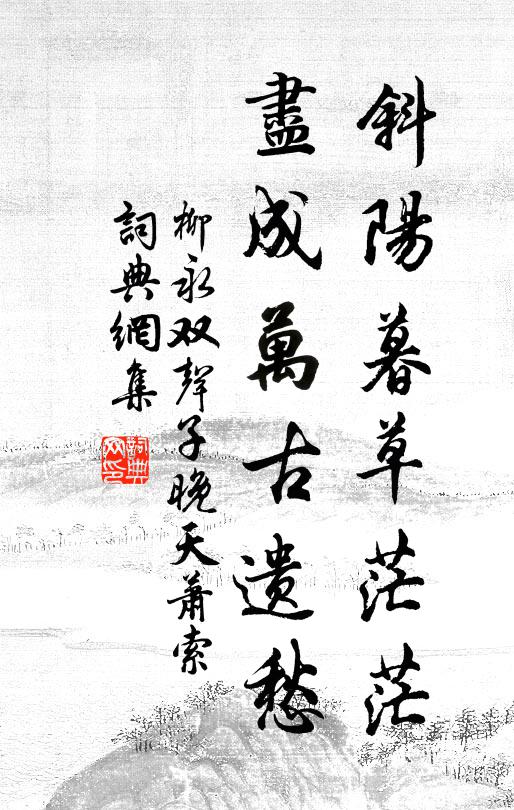 斜陽暮草茫茫
盡成萬古遗愁
柳永双聲子晚天蕭索
詞典網集
詞典网印